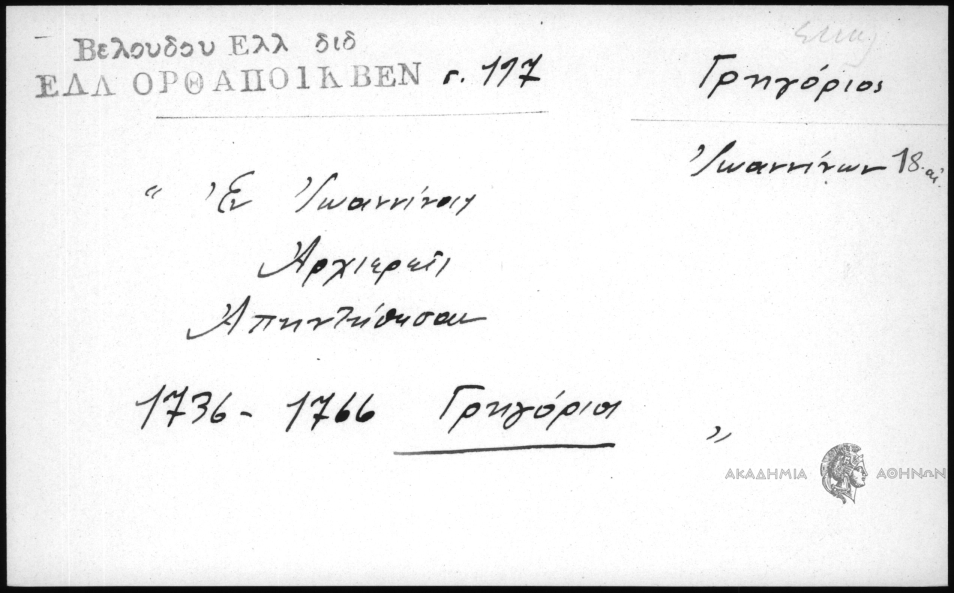 Βελουδου Ελλ διδ
ΕΛΛ ΟΡΘ ΑΠΟΙΚ ΒΕΝ σ. 117
Γρηγόριος
Ἰωαννίνων 18. αἰ.
“ Ἐν Ἰωαννίνοις
Ἀρχιερεῖς
Ἀπηντήθησαν
1736 - 1766 Γρηγόριος ”
ΑΚΑΔΗΜΙΑ ΑΘΗΝΩΝ